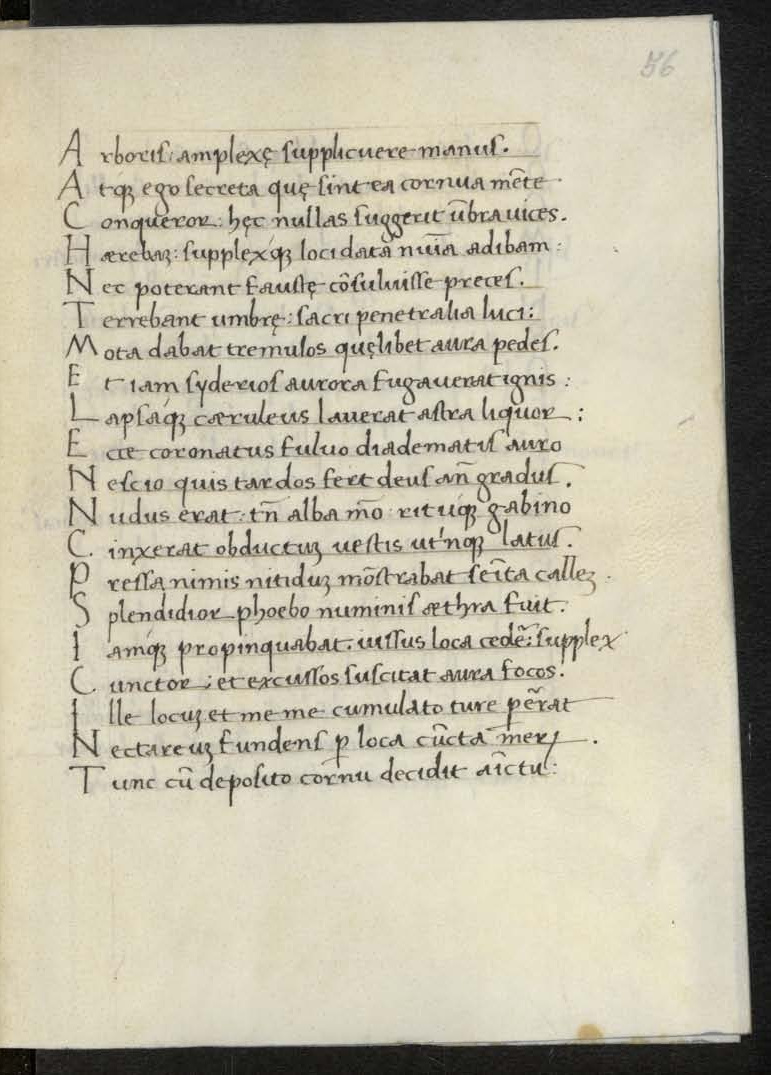 56
Arboris: amplexę supplicuere manus.
Atq; ego secreta quę sint ea cornua mēte
Conqueror: hęc nullas suggerit ūbra uices.
Hærebaʒ: supplexq; loci data nūia adibam:
Nec poterant faustę cōsuluisse preces.
Terrebant umbrę: sacri penetralia luci:
Mota dabat tremulos quęlibet aura pedes.
Etiam syderios aurora fugauerat ignis:
Lapsaq; cæruleus lauerat astra liquor:
Ecce coronatus fuluo diadematis auro
Nescio quis tardos fert deus an̄ gradus.
Nudus erat: tn̄ alba mō rituq; gabino
Cinxerat obductuʒ uestis ut'nq; latus.
Pressa nimis nitiduʒ mōstrabat seīta calleʒ.
Splendidior phoebo numinis æthra fuit.
Iamq; propinquabat. iussus loca cedē: supplex
Cunctor: et excussos suscitat aura focos.
Ille locuʒ et me me cumulato ture pēr̄at
Nectareuʒ fundens ꝑ loca cūcta merʒ.
Tunc cū deposito cornu decidit aīctu: